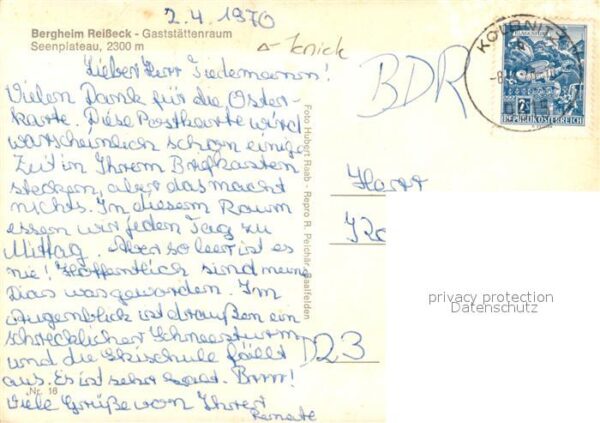 2.4.1970
Bergheim Reißeck - Gaststättenraum
Seenplateau, 2300 m
Knick
Lieber Herr Tiedemann!
Vielen Dank für die Oster-
karte. Diese Postkarte wird
warscheinlich schon einige
Zeit in Ihrem Briefkasten
stecken, aber das macht
nichts. In diesem Raum
essen wir jeden Tag zu
Mittag. Aber so leer ist es
nie! Hoffentlich sind meine
Dias was geworden. Im
Augenblick ist draußen ein
schrecklicher Schneesturm
und die Skischule fällt
aus. Es ist sehr kalt. Brrr!
Viele Grüße von Ihrer
Renate
Nr. 16
Foto Hubert Raab - Repro R. Peichär, Saalfelden
BDR
Herr
D 23
KOLBNITZ
2S
REPUBLIK ÖSTERREICH
privacy protection
Datenschutz